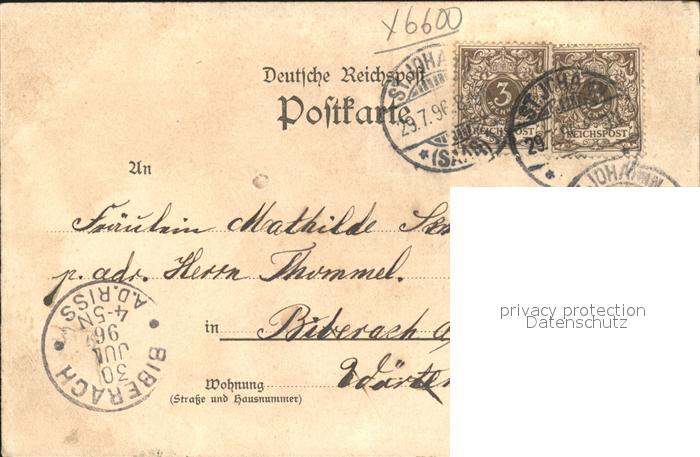 x6600
Deutsche Reichspost
Postkarte
ST. JOHA
29.7.96.8
*(SAAR)*
3
REICHSPOST
ST. JOHA
29.
3
REICHSPOST
JOHANN
An
Fräulein Mathilde
p. adr. Herrn Thommel.
in Biberach a
Württe
Wohnung
(Straße und Hausnummer)
BIBERACH
30
JUL
96
4-5N
A.D.RISS
privacy protection
Datenschutz